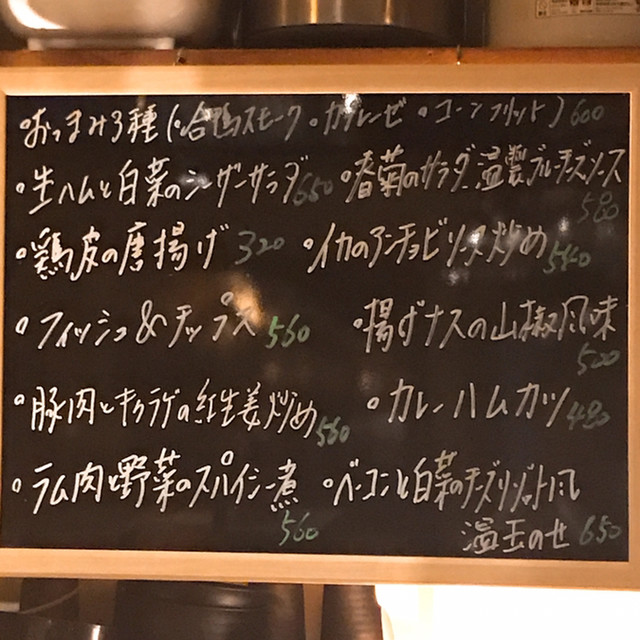 ・おつまみ3種(・合鴨スモーク・カプレーゼ・コーンフリット) 600
・生ハムと白菜のシーザーサラダ 650 ・春菊のサラダ 温製ブルーチーズソース 580
・鶏皮の唐揚げ 320 ・イカのアンチョビソース炒め 540
・フィッシュ&チップス 560 ・揚げナスの山椒風味 520
・豚肉とキクラゲの紅生姜炒め 560 ・カレーハムカツ 480
・ラム肉と野菜のスパイシー煮 560 ・ベーコンと白菜のチーズリゾット風
温玉のせ 650